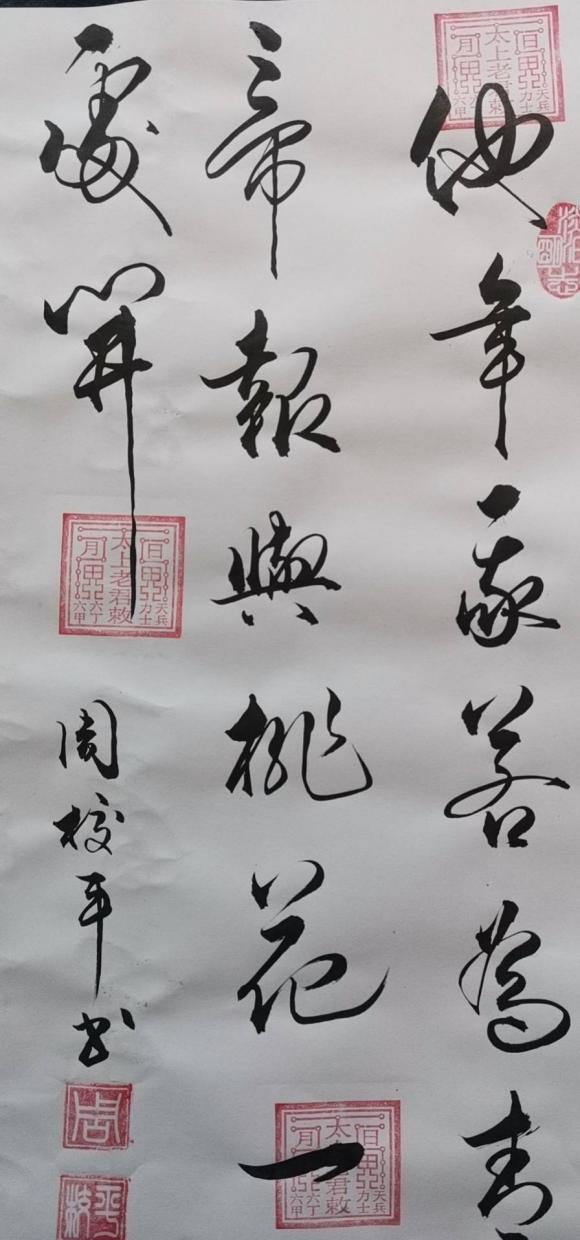 他年我若為青
帝報與桃花一
處開
周校平书
太上老君敕
天兵力士
六丁六甲
周